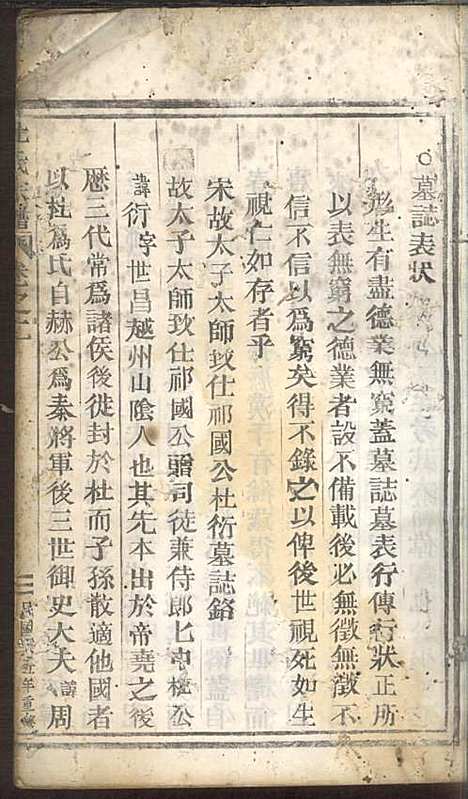 ○墓誌表狀
形生有盡德業無窮蓋墓誌墓表行傳行狀正所
以表無窮之德業者設不備載後必無徵無徵不
信不信以為窮矣得不錄之以俾後世視死如生
視仁如存者乎
宋故太子太師致仕祁國公杜衍墓誌銘
故太子太師致仕祁國公贈司徒兼侍郎七中杜公
諱衍字世昌越州山陰人也其先本出於帝堯之後
歷三代常為諸侯後徙封於杜而子孫散適他國者
以杜為氏自赫公為秦將軍後三世御史大夫諱周
氏譜 卷之二
民國 五年重